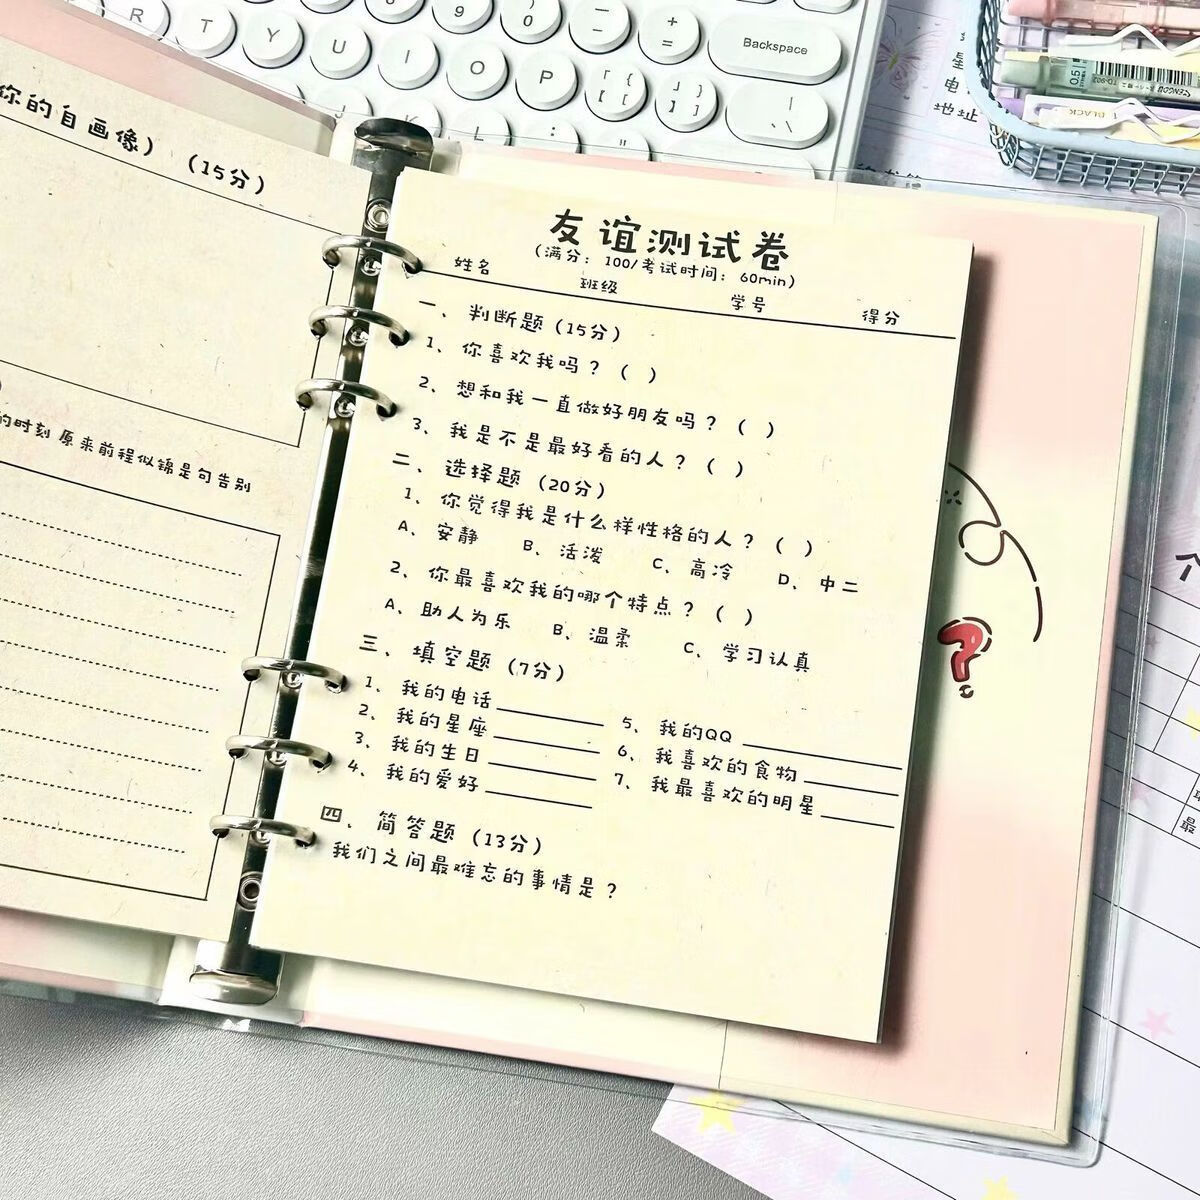 9
)
0
—
–
+
=
Backspace
R
T
Y
U
I
O
P
「 {
【 [
」 }
】 ]
|
、\
J
K
L
:
;
"
星
电
地址
0.5
BLACK
你的自画像) (15分)
的时刻 原来前程似锦是句告别
友谊测试卷
(满分: 100/考试时间: 60min)
姓名 班级 学号 得分
一、判断题(15分)
1、你喜欢我吗?( )
2、想和我一直做好朋友吗?( )
3、我是不是最好看的人?( )
二、选择题(20分)
1、你觉得我是什么样性格的人?( )
A、安静 B、活泼 C、高冷 D、中二
2、你最喜欢我的哪个特点?( )
A、助人为乐 B、温柔 C、学习认真
三、填空题(7分)
1、我的电话
2、我的星座
3、我的生日
4、我的爱好
5、我的QQ
6、我喜欢的食物
7、我最喜欢的明星
四、简答题(13分)
我们之间最难忘的事情是?
?
个
最